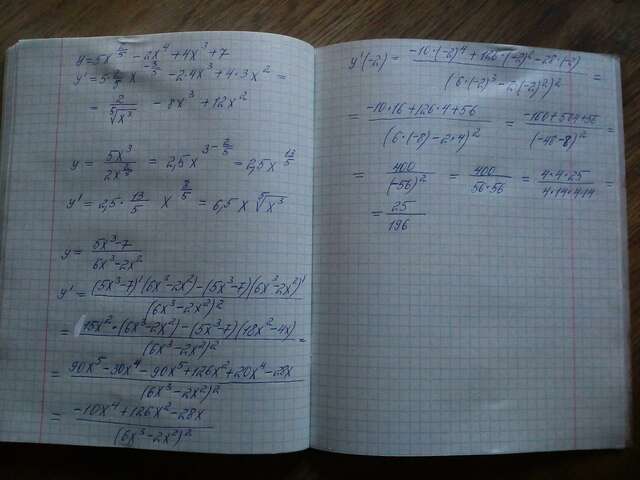 y = 5x^(2/5) - 2x^4 + 4x^3 + 7
y' = 5·2/5 x^(-3/5) - 2·4x^3 + 4·3x^2 =
= 2/⁵√x^3 - 8x^3 + 12x^2
y = 5x^3/2x^(2/5) = 2,5x^(3-2/5) = 2,5x^(13/5)
y' = 2,5·13/5 x^(8/5) = 6,5x ⁵√x^3
y = (5x^3-7)/(6x^3-2x^2)
y' = ((5x^3-7)'(6x^3-2x^2)-(5x^3-7)(6x^3-2x^2)')/(6x^3-2x^2)^2
= (15x^2·(6x^3-2x^2)-(5x^3-7)(18x^2-4x))/(6x^3-2x^2)^2 =
= (90x^5-30x^4-90x^5+126x^2+20x^4-28x)/(6x^3-2x^2)^2
= (-10x^4+126x^2-28x)/(6x^3-2x^2)^2
y'(-2) = (-10·(-2)^4+126·(-2)^2-28·(-2))/(6·(-2)^3-2(-2)^2)^2 =
= (-10·16+126·4+56)/(6·(-8)-2·4)^2 = (-160+504+56)/(-48-8)^2 =
= 400/(-56)^2 = 400/56·56 = 4·4·25/4·14·4·14 =
= 25/196